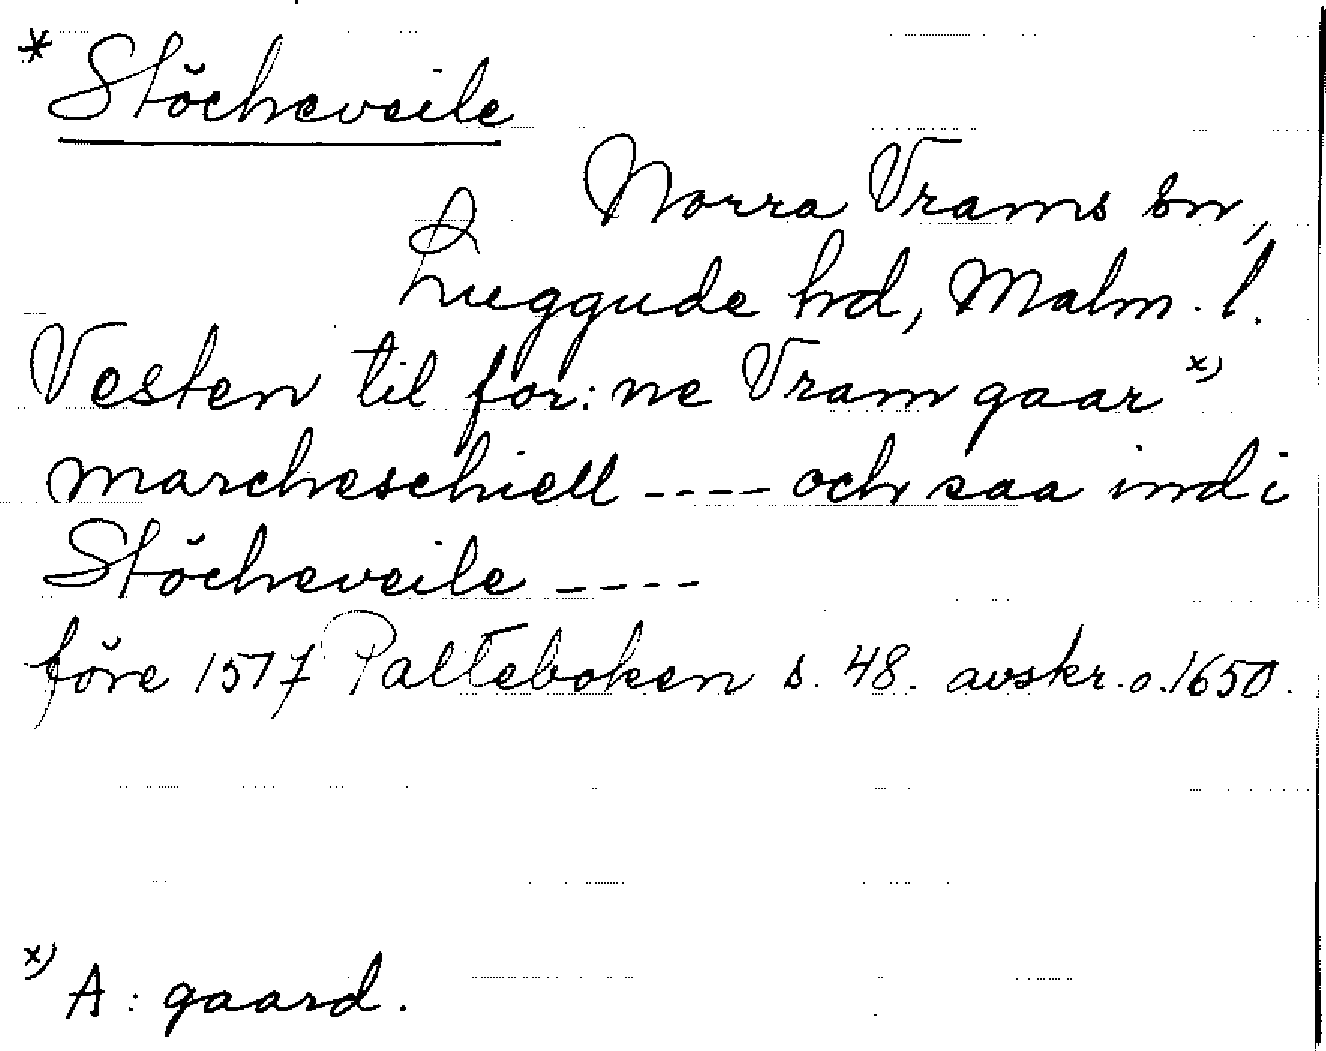 * Stöcheveile
Norra Vrams sn,
Luggude hd, Malm. l.
Vesten til for: ne Vram gaar x)
marcheschiell ---- och saa ind i
Stöcheveile ----
före 1577 Palteboken s. 48. avskr. o. 1650.
x) A: gaard.